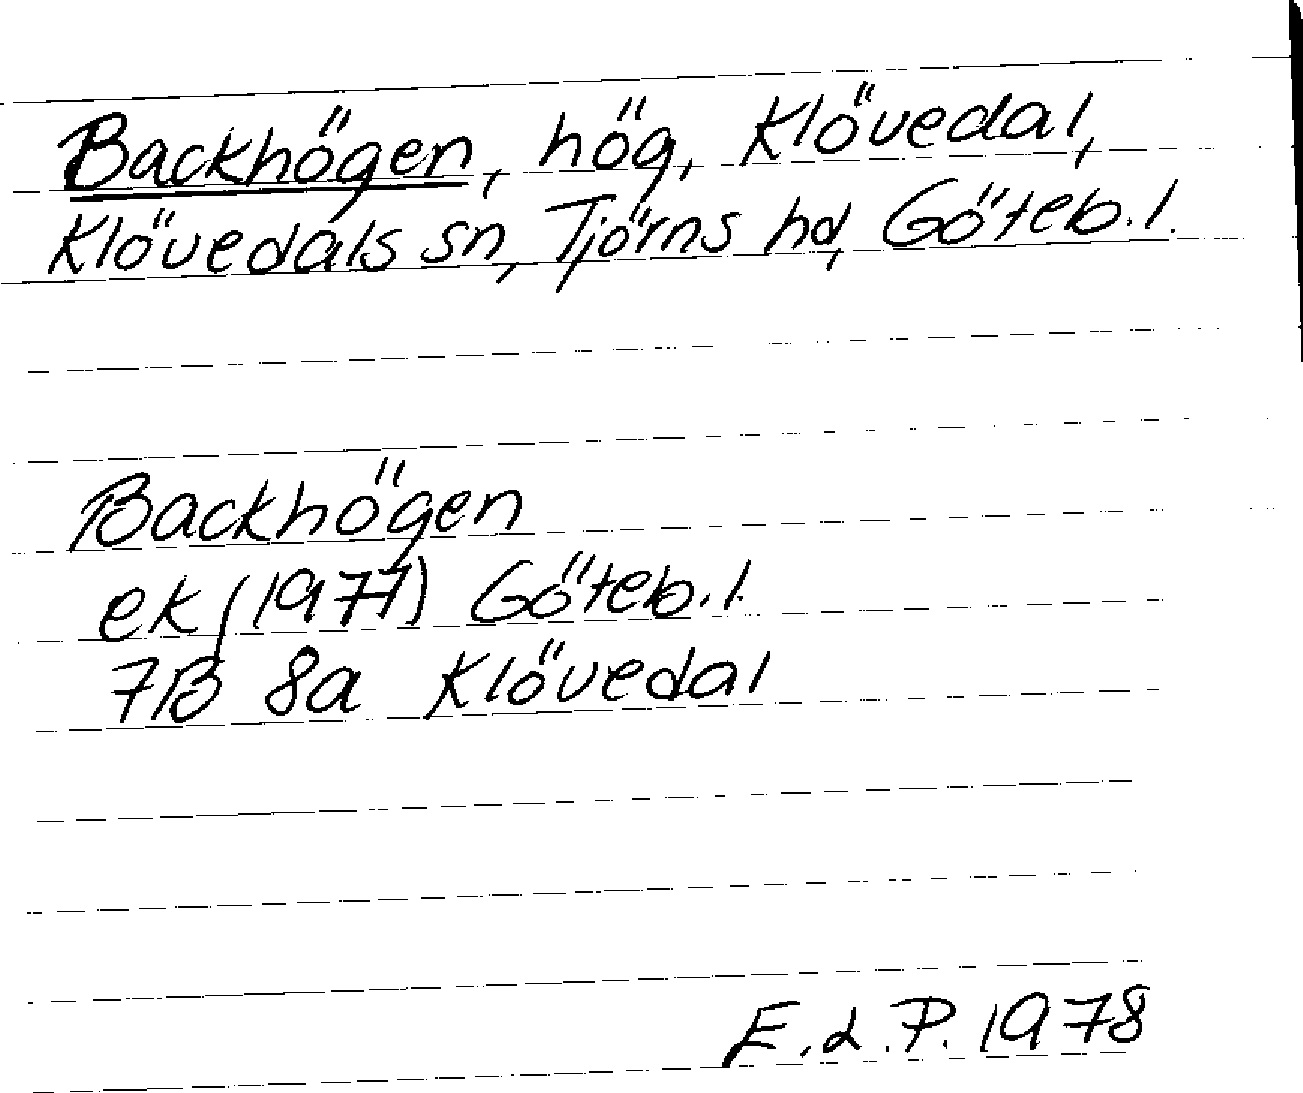 Backhögen, hög, Klövedal,
Klövedals sn, Tjörns hd, Göteb.l.
Backhögen
ek (1977) Göteb.l.
7B 8a Klövedal
E. d. P. 1978